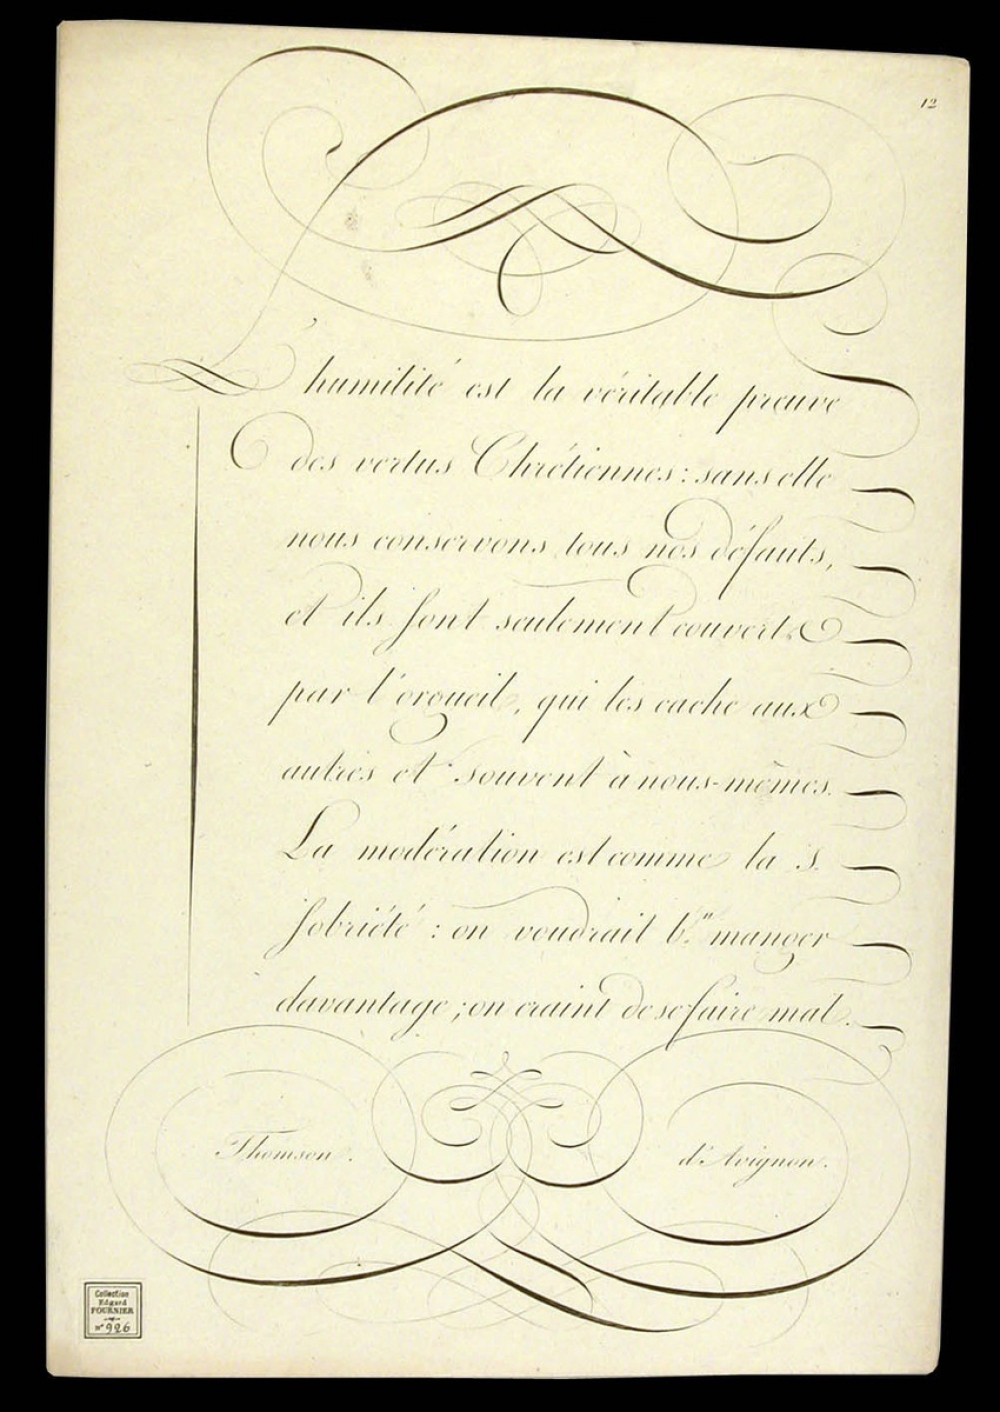 12
L'humilité est la véritable preuve
des vertus Chrétiennes : sans elle
nous conservons tous nos défauts,
et ils sont seulement couverts
par l'orgueil, qui les cache aux
autres et souvent à nous-mêmes.
La modération est comme la s.
sobriété : on voudrait b.n manger
davantage ; on craint de se faire mal.
Thomson.
d'Avignon.
Collection
Edgard
FOURNIER
n° 926